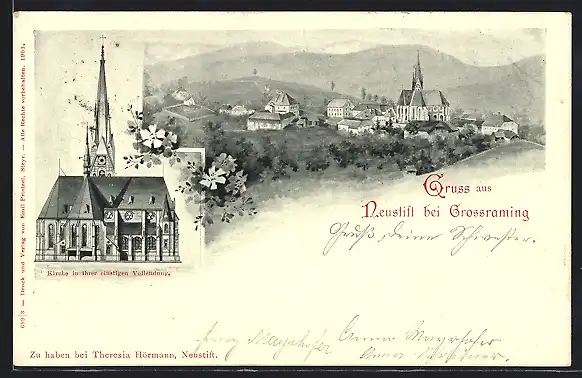 Gruss aus
Neustift bei Grossraming
Gruß, deine Schwester.
Kirche in ihrer einstigen Vollendung.
Mayrhofer Anna
Anna
Zu haben bei Theresia Hörmann, Neustift.
659/3 — Druck und Verlag von Emil Prietzel, Steyr. — Alle Rechte vorbehalten. 1903.